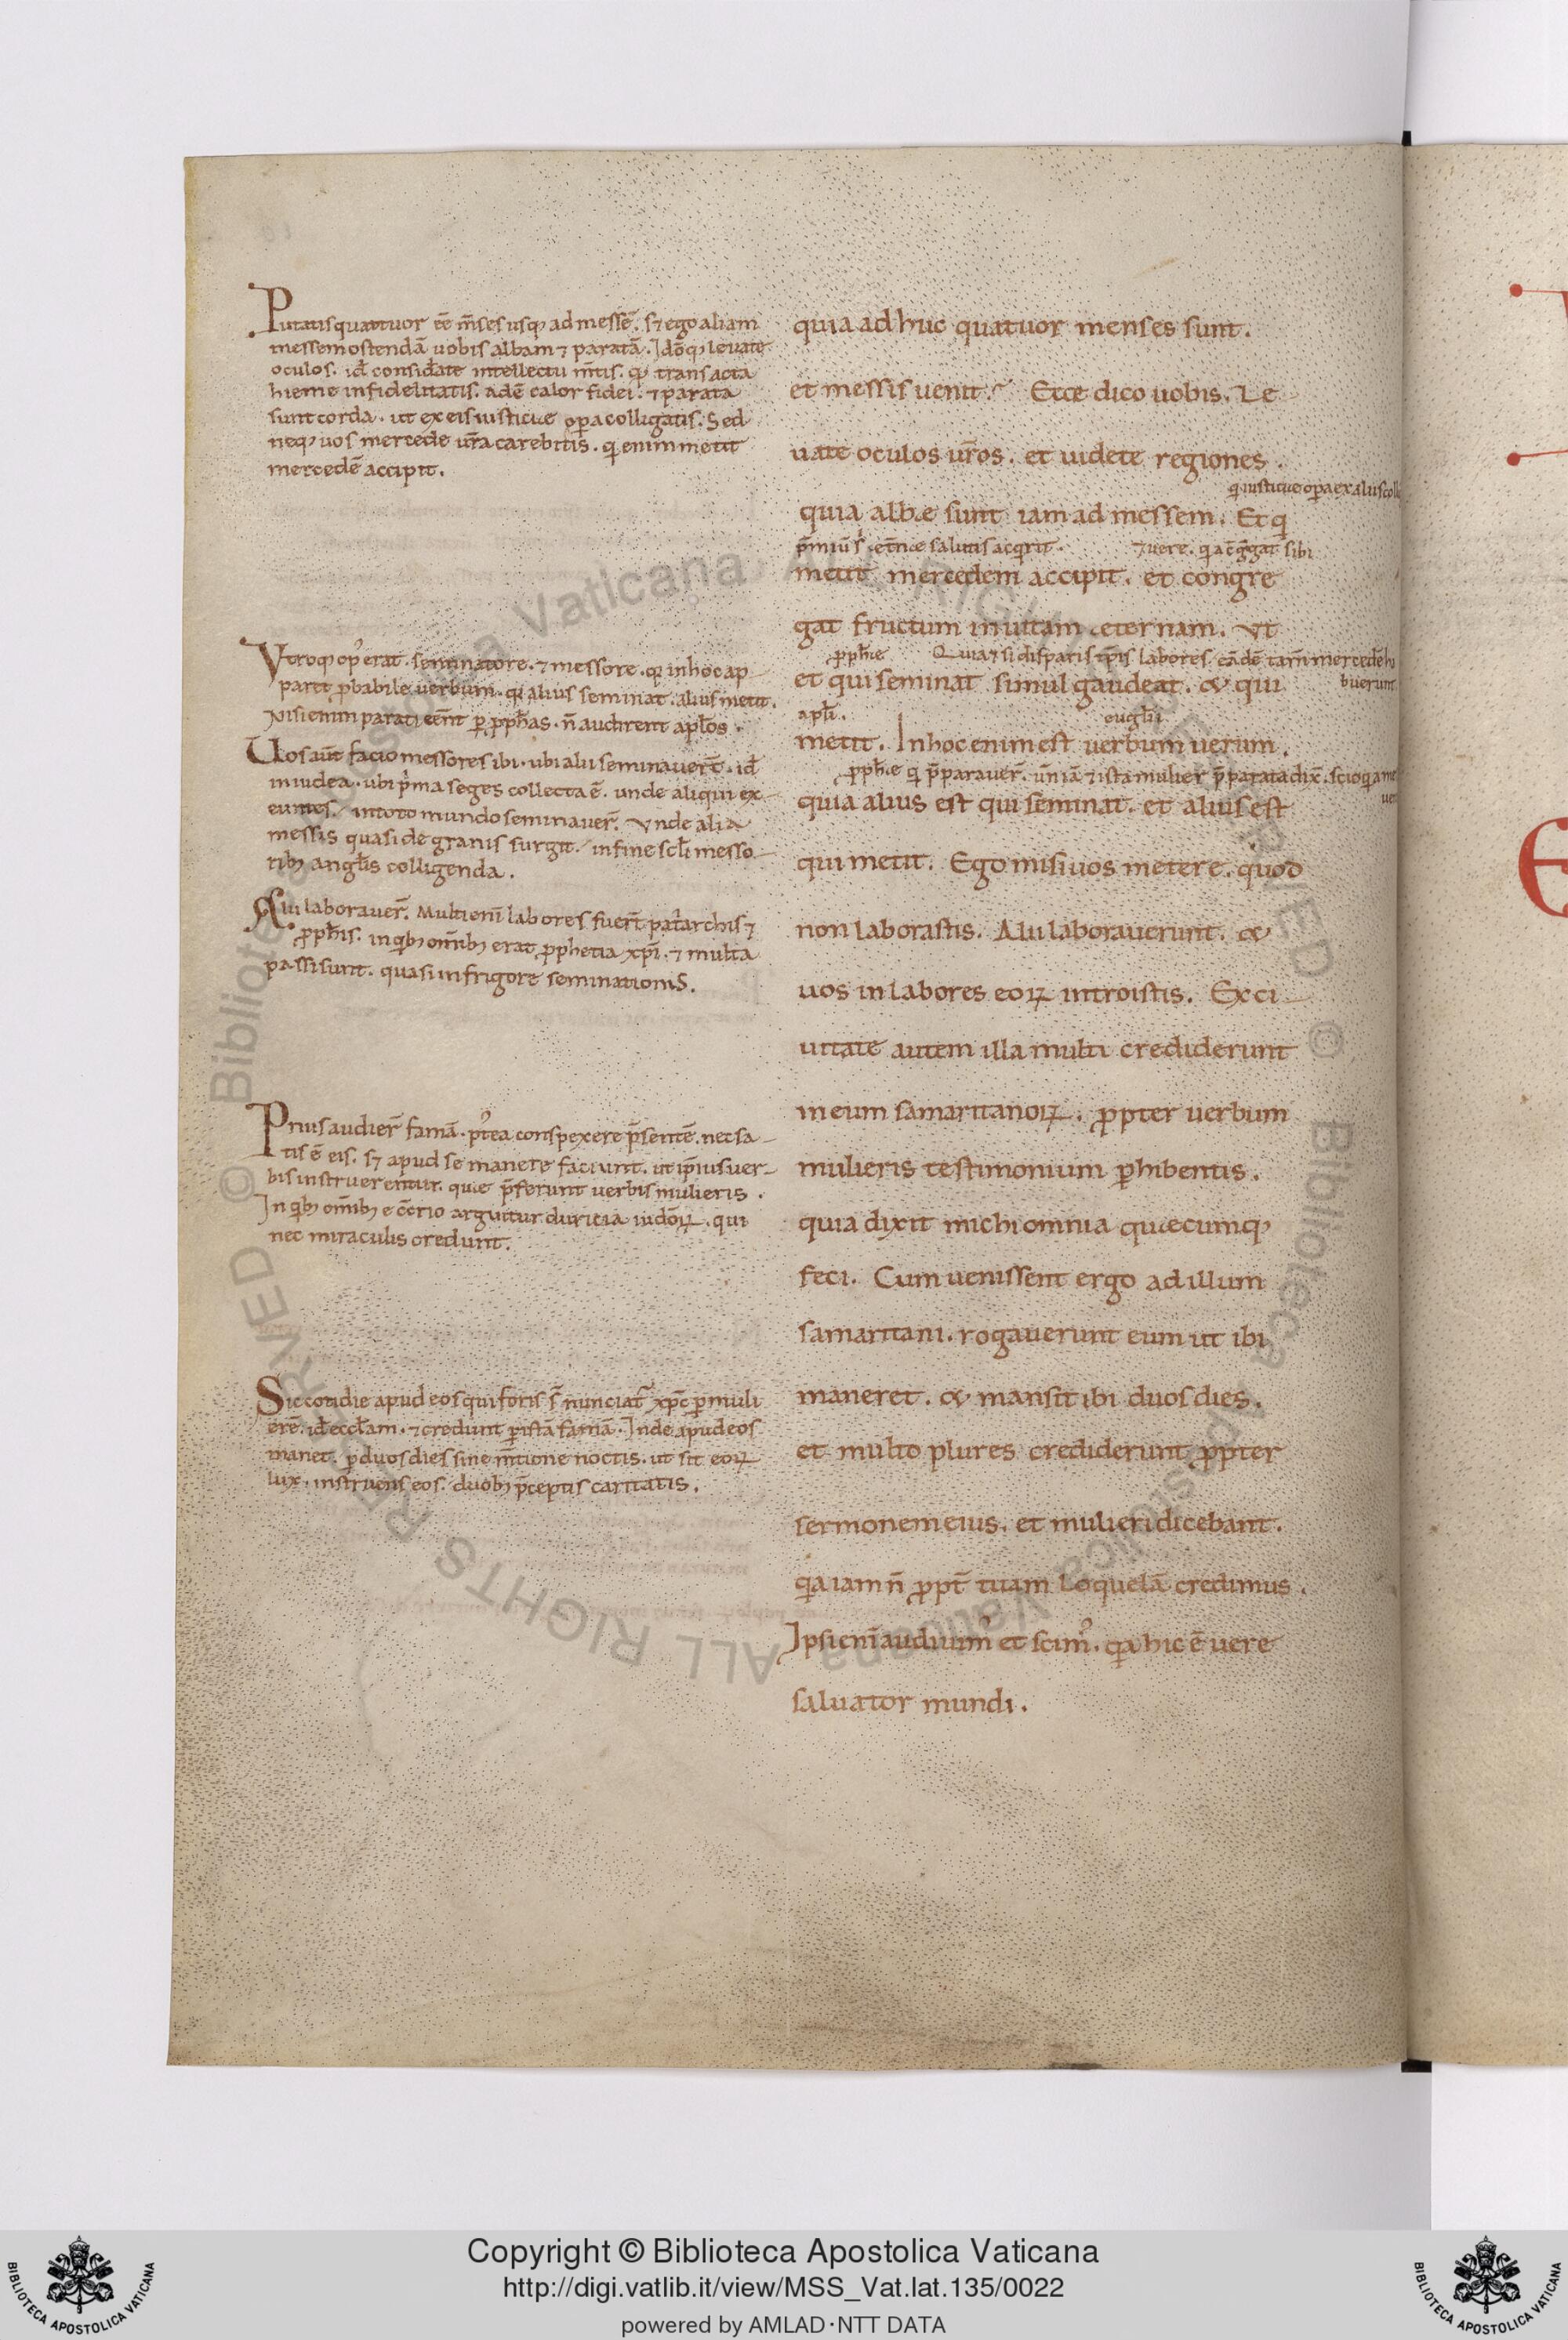 Putatis quattuor eē m̄ses usq; ad messē. sꝫ ego aliam
messem ostendā uobis albam ⁊ paratā. Idōq; leuate
oculos. id̄ consid̄ate intellectu m̄tis. qđ transacta
hieme infidelitatis. adē calor fidei. ⁊ parata
sunt corda. ut ex eis iusticiae oꝑa colligatis. Sed
neq; uos mercede ur̄a carebitis. qͥ enim metit
mercedē accipit.
Vtroq; op᾽ erat. seminatore. ⁊ messore. qͥ in hoc ap
paret ꝓbabile uerbum. qͥ alius seminat. alius metit.
Nisi enim parati eēnt ꝑ ꝓph̄as. n̄ audirent apl̄os.
Uos aut̄ facio messores ibi. ubi alii seminauer̄t. id̄
in iudea. ubi pͥma seges collecta ē. unde aliqui ex
euntes. in toto mundo seminauer̄. Vnde alia
messis quasi de granis surgit. in fine scl̄i messo
rib; angl̄is colligenda.
Alii laborauer̄. Multi eni᷄ labores fuer̄t patͥarchis ⁊
ꝓph̄is. in qͥb; om̄ib; erat ꝓphetia xp̄i. ⁊ multa
passi sunt. quasi in frigore seminationis.
Prius audier̄ famā. p᾽tea conspexere p̄sentē. nec sa
tis ē eis. sꝫ apud se manere faciunt. ut ip̄ius uer
bis instruerentur. quae p̄ferunt uerbis mulieris.
In qͥb; om̄ib; e c̄rio arguitur duricia iudōꝝ. qui
nec miraculis credunt.
Sic cotidie apud eos qui foris s̄t nunciat᷑ xp̄c ꝑ muli
erē. id̄ eccl̄am. ⁊ credunt ꝑ istā famā. Inde apud eos
manet. ꝑ duos dies sine m̄tione noctis. ut sit eoꝝ
lux. instruens eos. duob; p̄ceptis caritatis.
quia adhuc quatuor menses sunt.
et messis uenit? Ecce dico uobis. Le
uate oculos ur̄os. et uidete regiones.
qͥ iusticiae oꝑa ex aliis coll
quia albae sunt iam ad messem. Et qͥ
p̄miū s. et̄nae salutis acqͥrit. ⁊ uere. qͥa c̄gͬgat sibi
metit mercedem accipit. et congre
gat fructum in uitam aeternam. Vt
ꝓph̄ae Quia ⁊ si disparis tp̄is labores. eādē tam̄ mercedē h
buerunt
et qui seminat simul gaudeat. & qui
apl̄i. euugl̄ii
metit. In hoc enim est uerbum uerum.
ꝓph̄ae qͥ p̄parauer̄. un̄ iā ⁊ ista mulier p̄parata dix̄. scio qͥa me
quia alius est qui seminat. et alius est
qui metit. Ego misi uos metere. quod
non laborastis. Alii laborauerunt. &
uos in labores eoꝝ introistis. Ex ci
uitate autem illa multi crediderunt
in eum samaritanoꝝ. ꝓpter uerbum
mulieris testimonium ꝑhibentis.
quia dixit michi omnia quaecumq;
feci. Cum uenissent ergo ad illum
samaritani. rogauerunt eum ut ibi
maneret. & mansit ibi duos dies.
et multo plures crediderunt ꝓpter
sermonem eius. et mulieri dicebant.
qͥa iam n̄ ꝓpt̄ tuam loquelā credimus.
Ipsi eni᷄ audiuim᾽ et scim᾽. qͥa hic ē uere
saluator mundi.
Copyright © Biblioteca Apostolica Vaticana
http://digi.vatlib.it/view/MSS_Vat.lat.135/0022
powered by AMLAD·NTT DATA